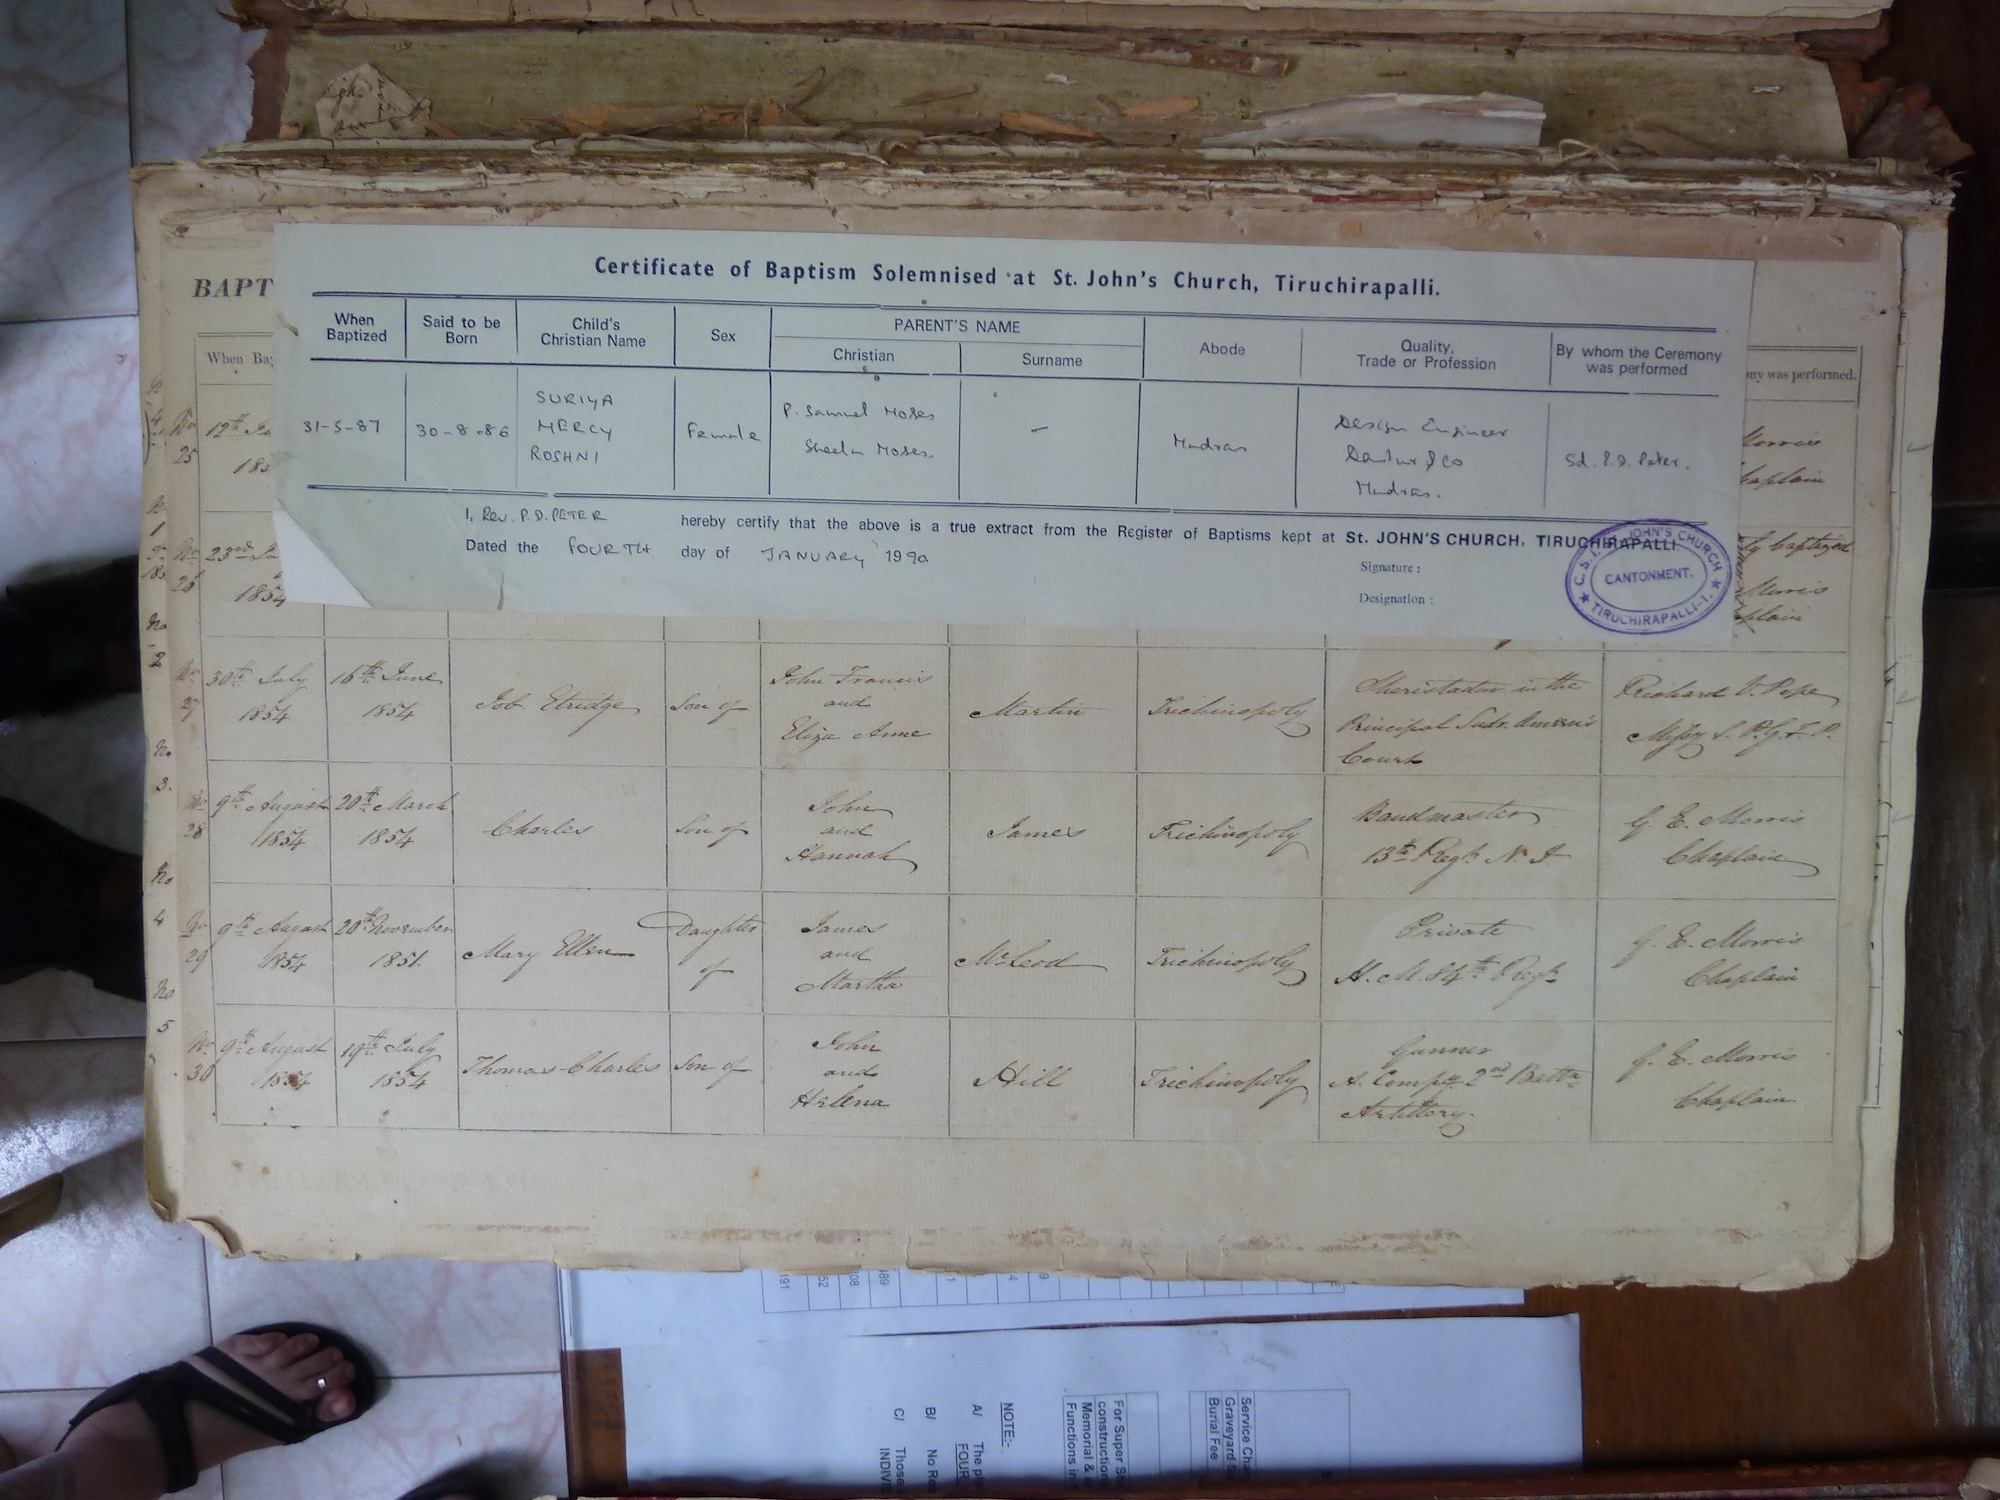 Certificate of Baptism Solemnised at St. John's Church, Tiruchirapalli.
When Baptized
Said to be Born
Child's Christian Name
Sex
PARENT'S NAME
Christian
Surname
Abode
Quality, Trade or Profession
By whom the Ceremony was performed
31-5-87
30-8-86
SURIYA
MERCY
ROSHNI
Female
P. Samuel Moses
Sheela Moses.
—
Madras
Design Engineer
Madras.
Sd. P.D. Peter.
I, Rev. P.D. PETER hereby certify that the above is a true extract from the Register of Baptisms kept at St. JOHN'S CHURCH, TIRUCHIRAPALLI
Dated the FOURTH day of JANUARY 1990
Signature :
Designation :
C.S.I. St. JOHN'S CHURCH
CANTONMENT.
★ TIRUCHIRAPALLI-1. ★
BAPT
When Bap
ny was performed.
No 25
12th
185
Morris
Chaplain
No 26
23rd
1854
ly baptized
Morris
plain
No 27
30th July 1854
16th June 1854
Job Etridge
Son of
John Francis
and
Eliza Anne
Martin
Trichinopoly
Sheristadar in the
Principal Sudr. Ameen's
Court
Richard V. Pope
Missy S. P. G. F. P.
No 28
9th August 1854
20th March 1854
Charles
Son of
John
and
Hannah
James
Trichinopoly
Bandmaster
13th Regt. N. I
G. E. Morris
Chaplain
No 29
9th August 1854
20th November 1851.
Mary Ellen
Daughter of
James
and
Martha
McLeod
Trichinopoly
Private
H. M. 84th Regt.
G. E. Morris
Chaplain
No 30
9th August 1854
19th July 1854
Thomas Charles
Son of
John
and
Helena
Hill
Trichinopoly
Gunner
A. Compy. 2nd Battn
Artillery.
G. E. Morris
Chaplain.
Service Cha
Graveyard M
Burial Fee
For Super St
construction
Memorial &
Functions in
NOTE:-
A/ The pl
FOUR
B/ No Re
C/ Those
INDIV